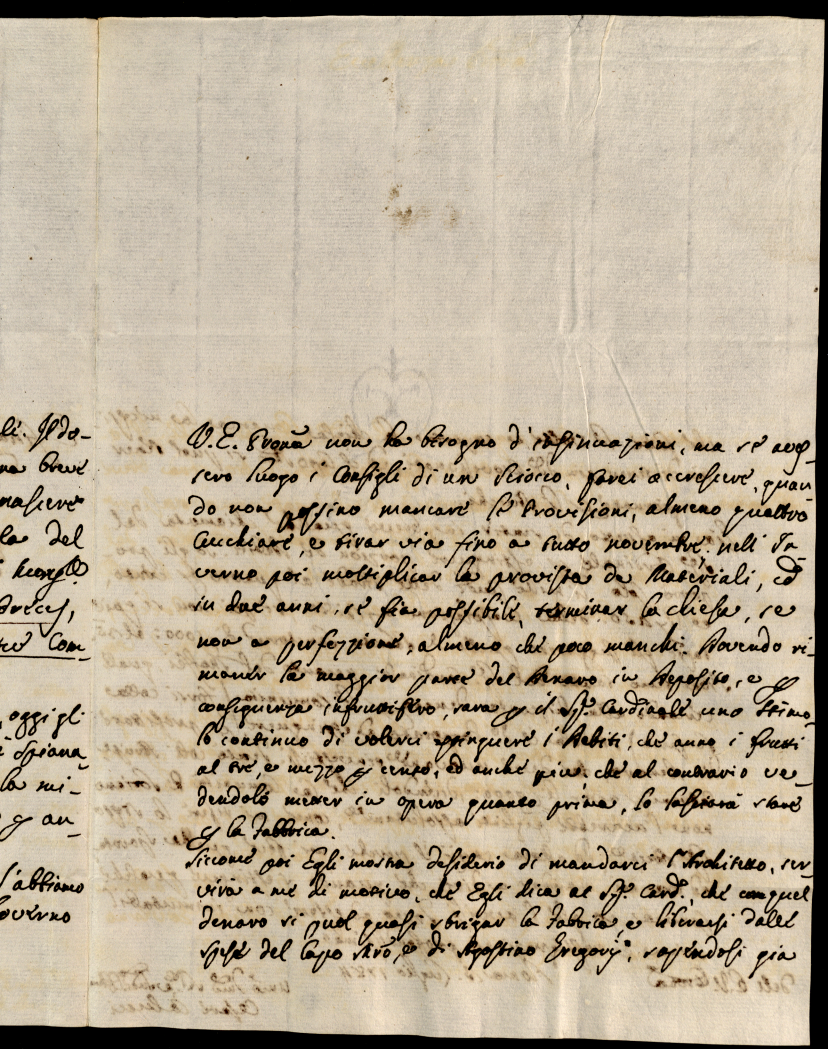 li. Il do-
na breve
nascere
la del
Com-
oggi gli
Spiana-
la mi-
p an-
l'abbiamo
Governo
V.E. Prona non ha bisogno d'insinuazioni, ma se aves-
sero luogo i Consigli di un sciocco, farei accrescere, quan
do non possino mancare le Provisioni, almeno quattro
Cucchiare, e tirar via fino a tutto novembre: nell' In
verno poi moltiplicar la provista de Materiali, ed
in due anni, se fia possibile, terminar la chiesa, se
non a perfezzione, almeno che poco manchi. Dovendo ri-
maner la maggior parte del Denaro in Deposito, e p
consiguenza infruttifero, sara p il Sigr. Cardinale uno stimo
lo continuo di volerci estinguere i Debiti, che anno i frutti
al tre, e mezzo p cento, ed anche piu: che al contrario ve-
dendolo metter in opera quanto prima, lo lasciarà stare
p la Fabbrica.
Siccome poi Egli mostra desiderio di mandarci l'Architetto, ser
virà a me di motivo, che Egli dica al Sigr. Card. che con quel
denaro si puol quasi sbrigar la Fabrica, e liberarsi dalle
spese del Capo Mro, e di Agostino Gregorj, sapendosi gia